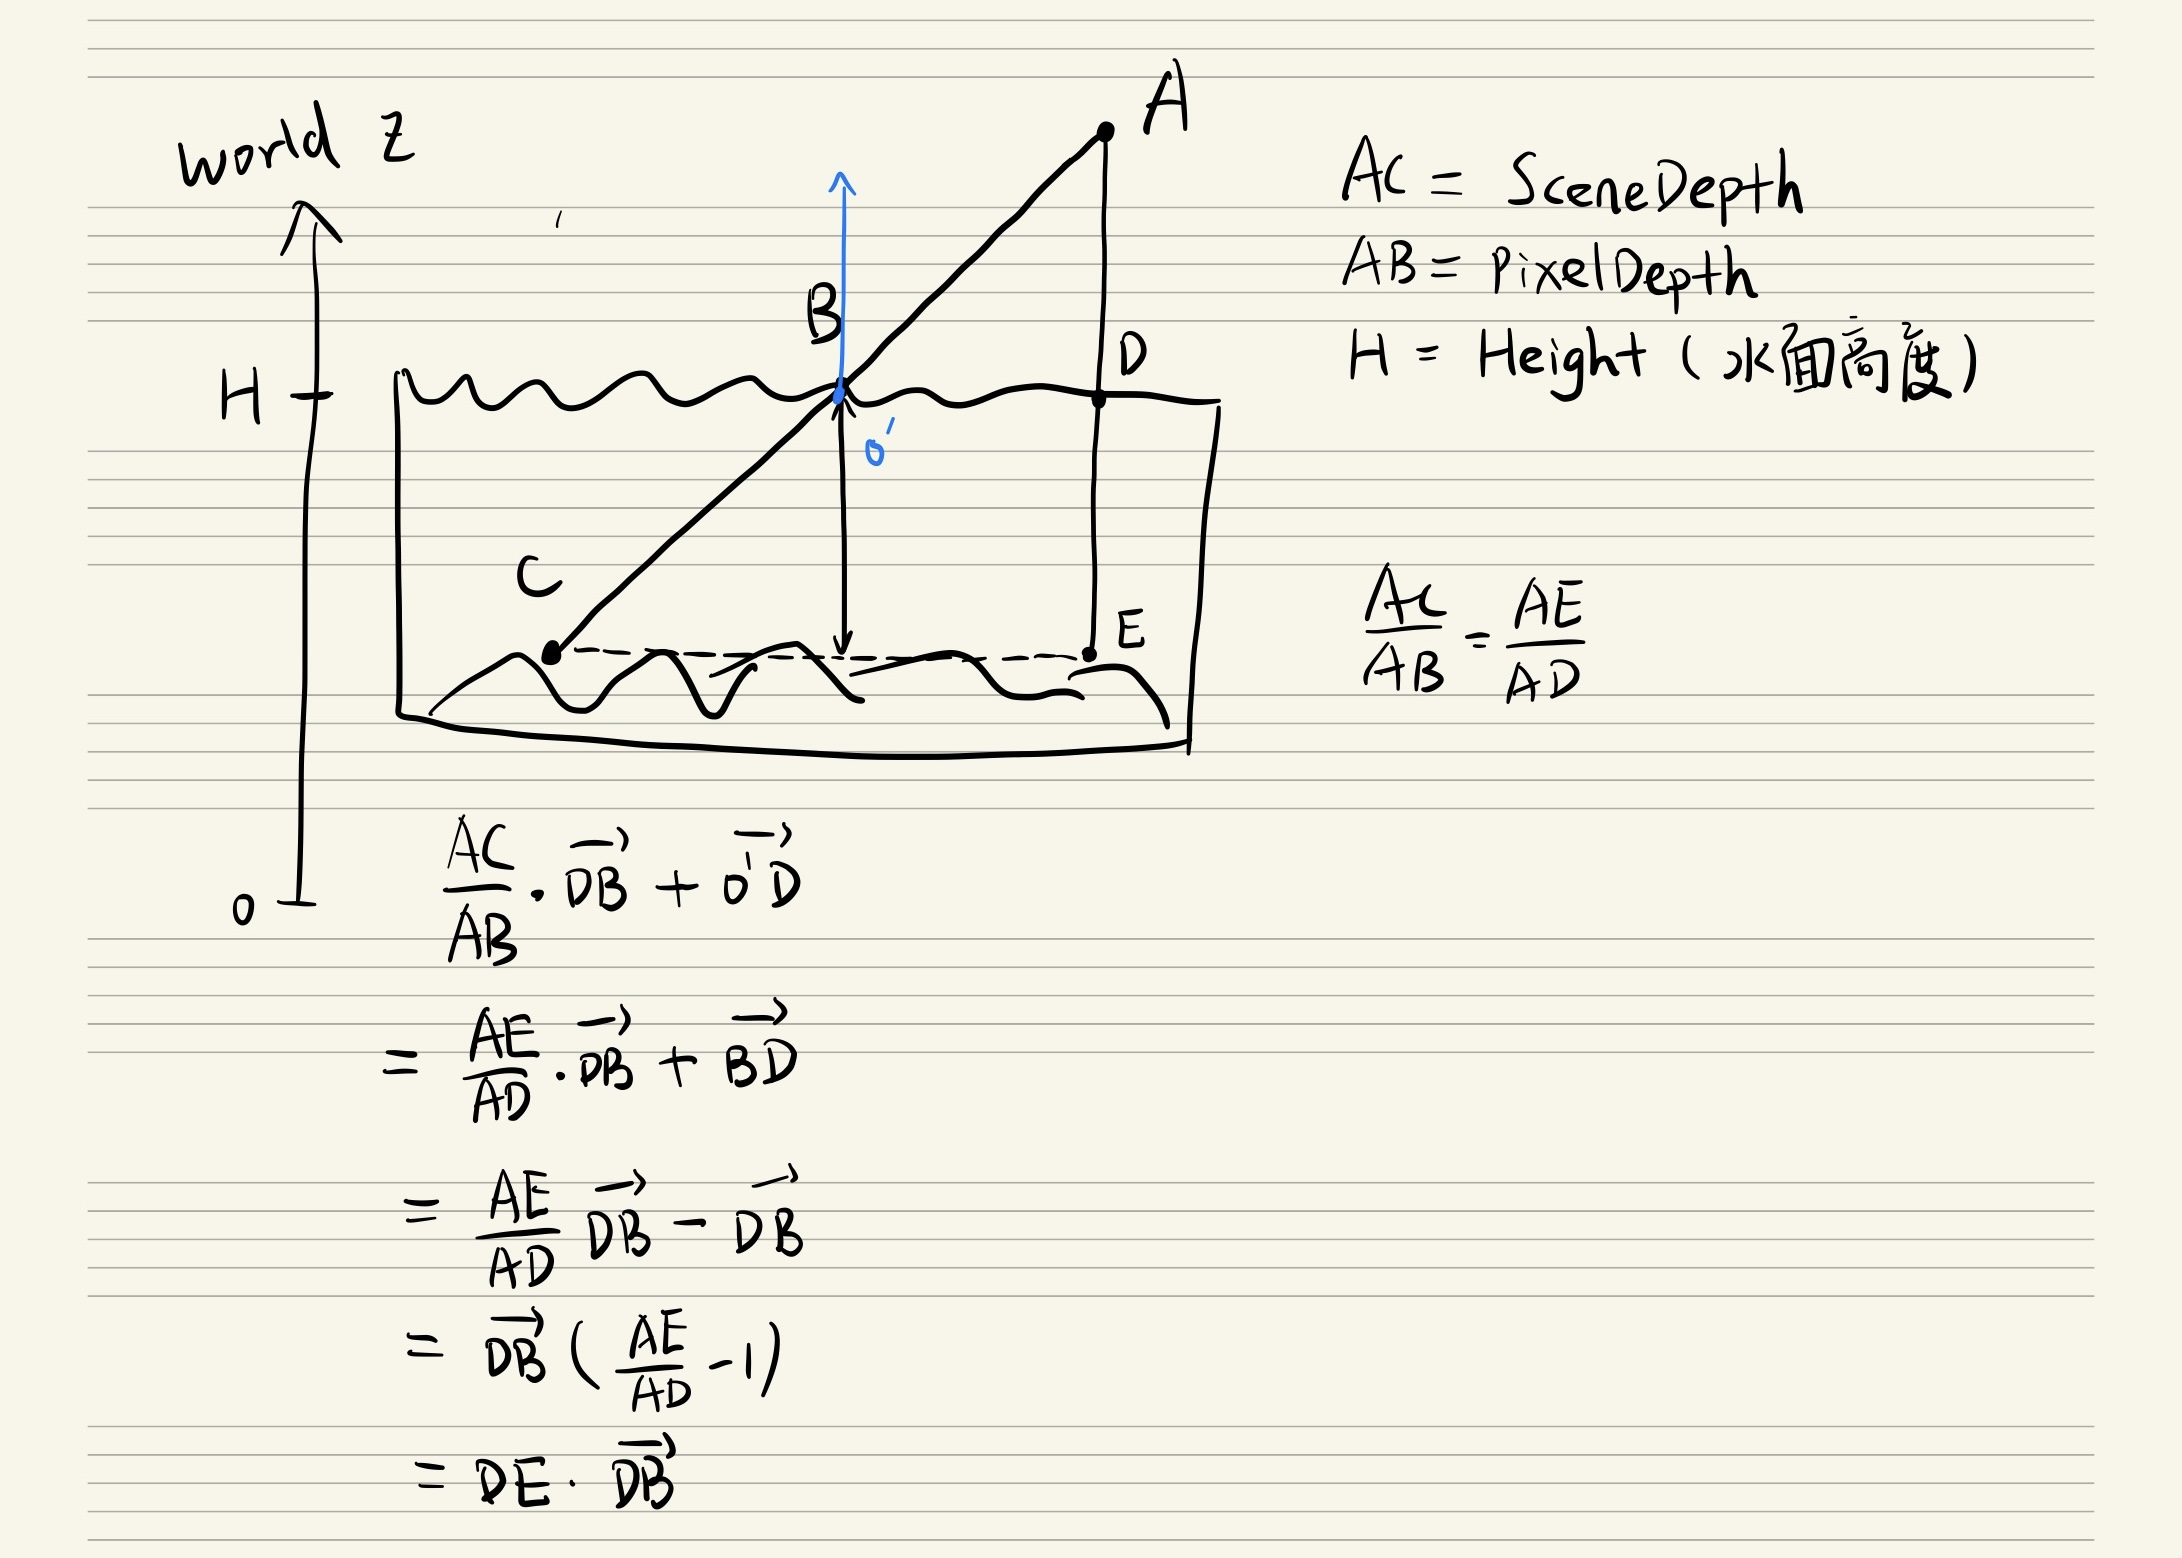 world z
A
B
H
D
O'
C
E
O
AC = SceneDepth
AB = PixelDepth
H = Height (水面高度)
AC/AB = AE/AD
AC/AB · DB→ + O'D→
= AE/AD · DB→ + BD→
= AE/AD DB→ - DB→
= DB→ (AE/AD - 1)
= DE · DB→